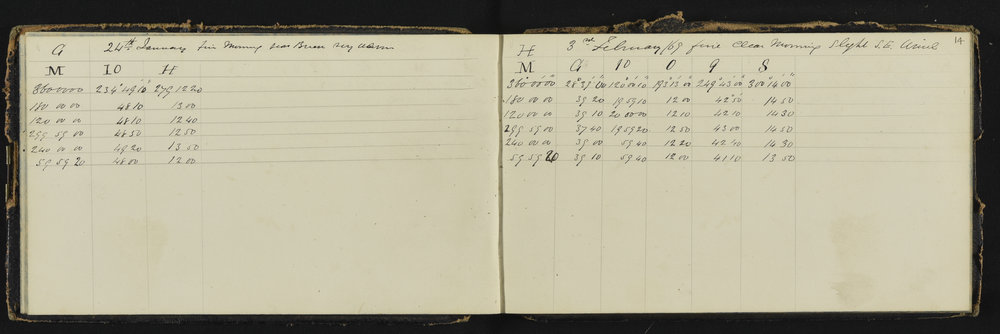 G 24th January fine Morning sea Breeze very warm
M IO H
360 00 00 234° 49' 10" 279 12 20
180 00 00 48 10 13 00
120 00 00 48 10 12 40
299 59 00 48 50 12 50
240 00 00 49 20 13 50
59 59 20 48 00 12 00
14
H 3rd February/69 fine clear Morning Slight S.E. Wind
M G 10 O 9 S
360° 00' 00" 28° 39' 00" 120° 00' 10" 193° 13' 00" 249° 43' 00" 300° 14' 00"
180 00 00 39 20 19 59 10 12 00 42 50 14 50
120 00 00 39 10 20 00 00 12 10 42 10 14 30
299 59 00 37 40 19 59 20 12 50 43 00 14 50
240 00 00 39 00 59 40 12 20 42 40 14 30
59 59 20 39 10 59 40 12 00 41 10 13 50